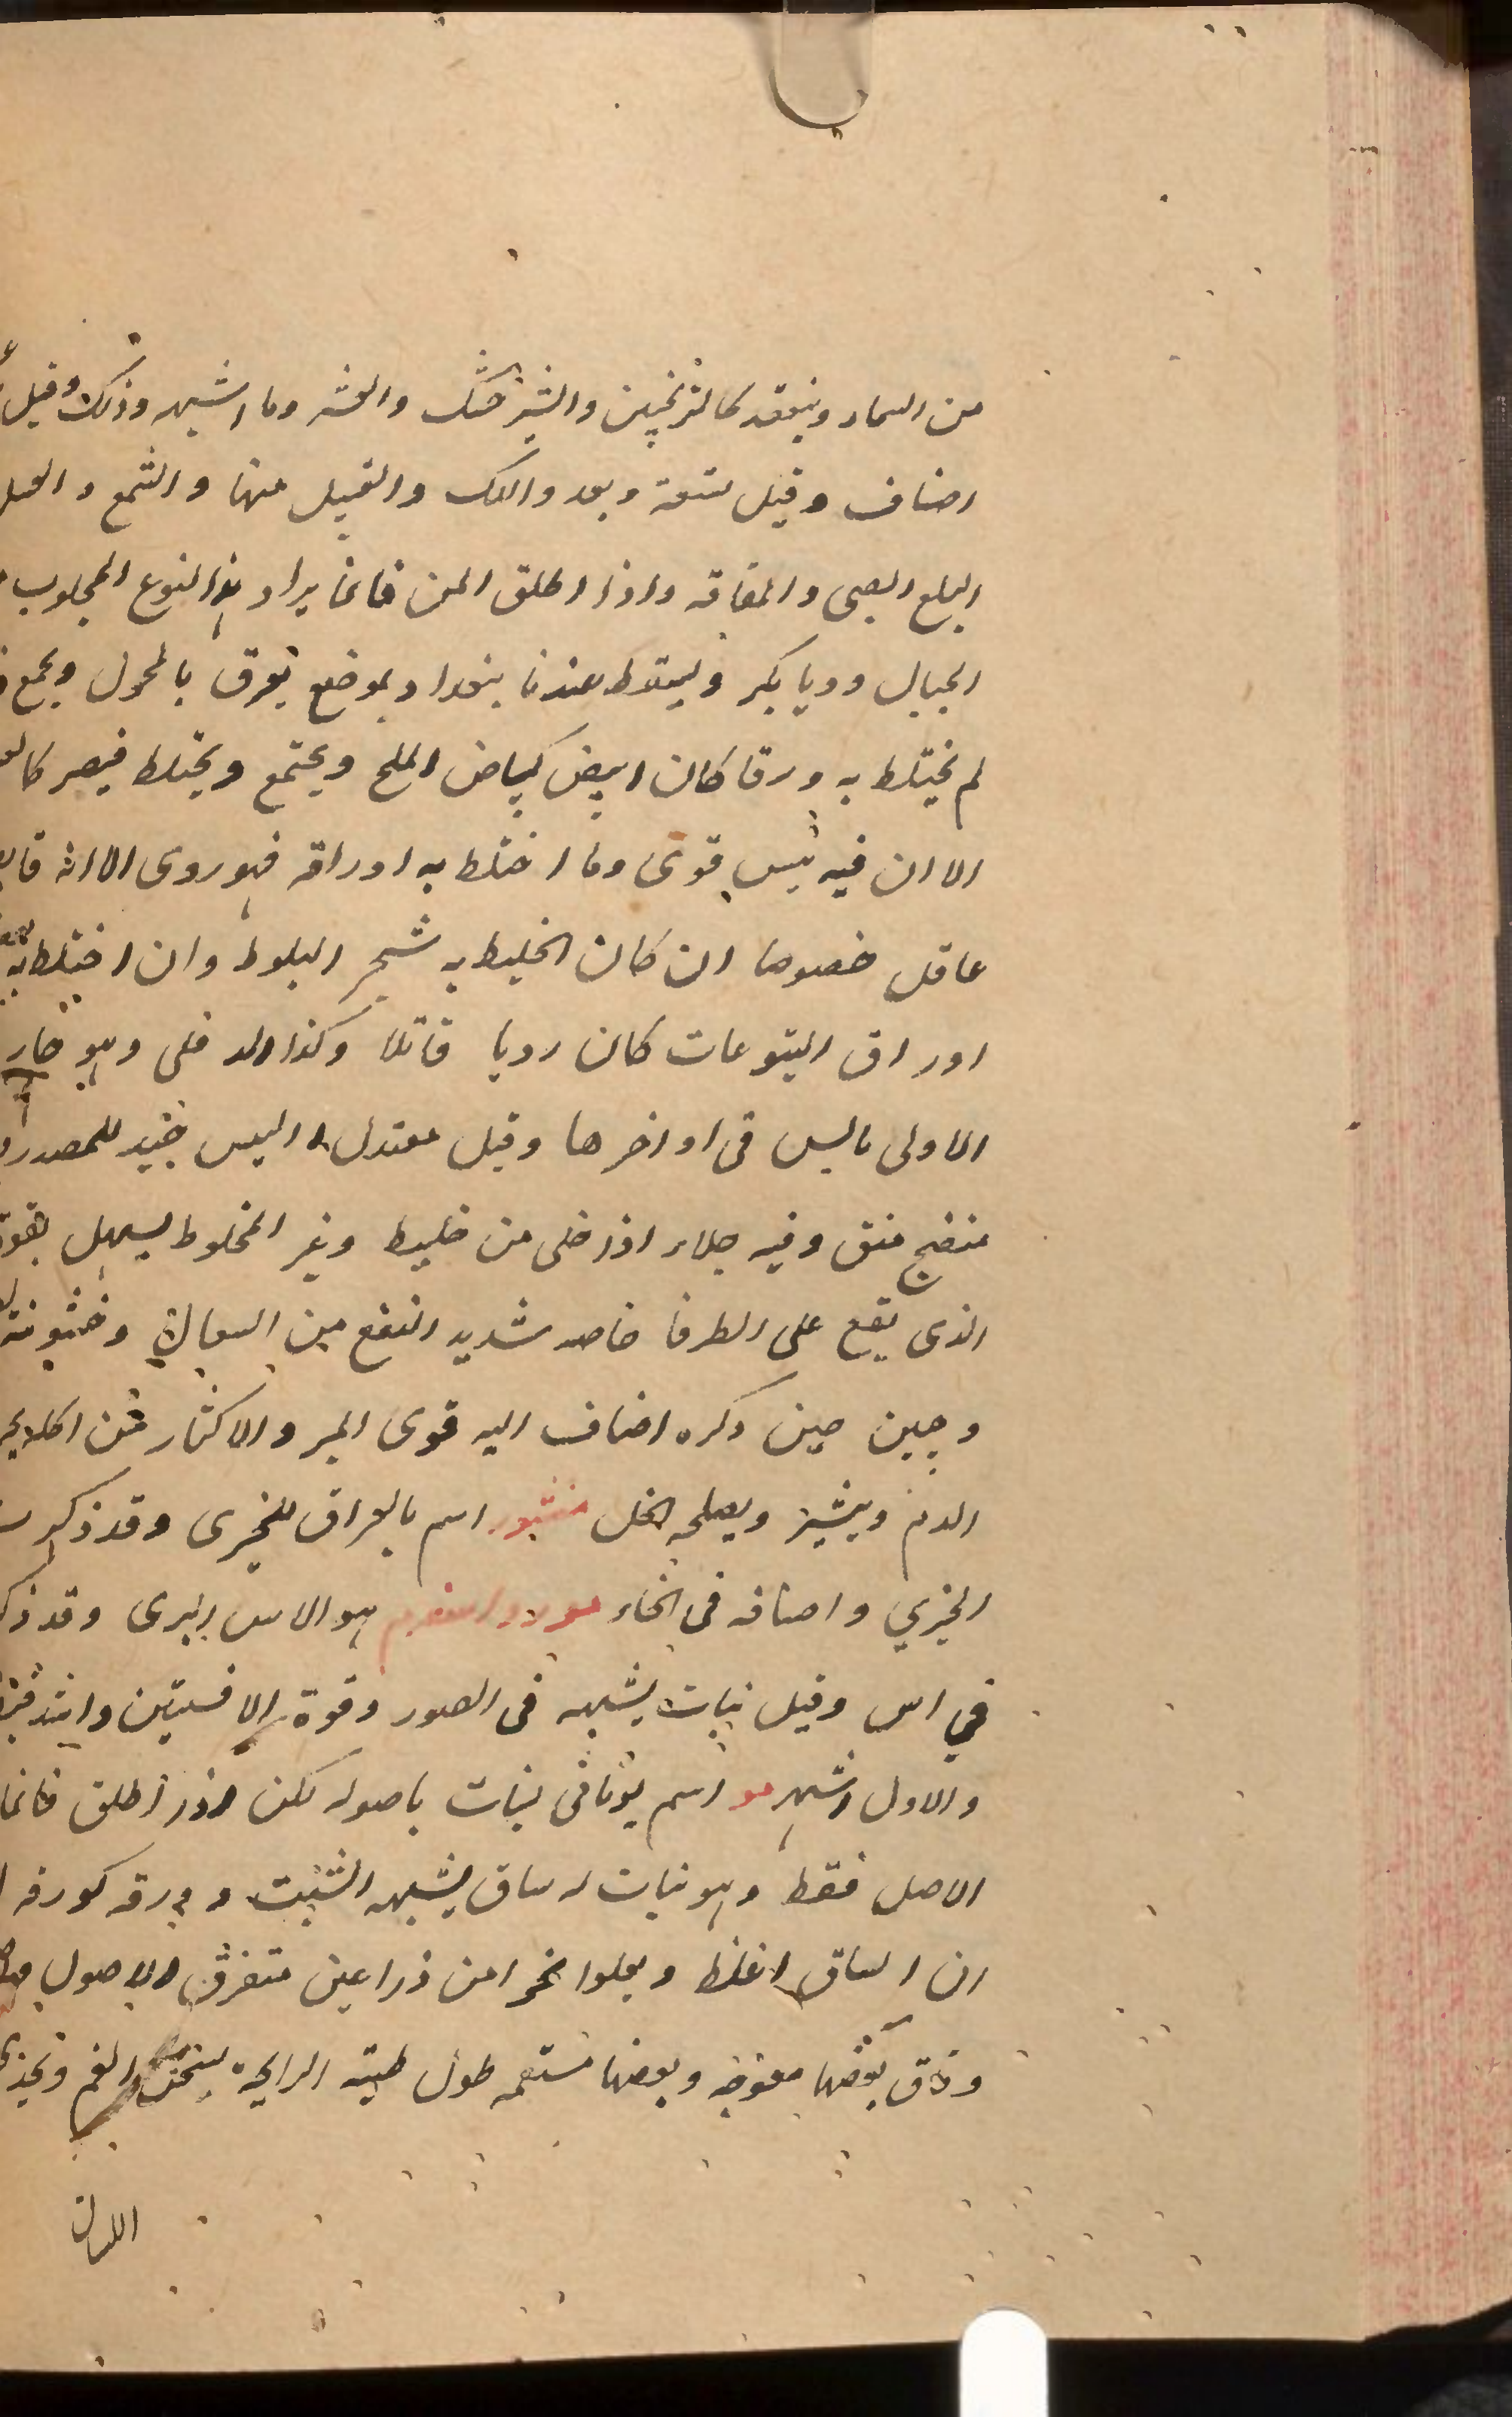 من السماء وينعقد كالترنجبين والشيرخشك والعشر وما اشبهه وذلك وقيل
اصناف وقيل ستعة وبعد واللك والقبيل منها و الشمع و العسل
البلع البصى والمفاقه واذا اطلق المن فانما يراد بهذا النوع المجلوب
الجبال وديا بكر ويسقط عندنا ببغداد بموضع يعرف بالمحول ويجمع
لم يختلط به ورقا كان ابيض كبياض الملح ويجتمع ويختلط فيصير
الا ان فيه يبس قوى وما اختلط به اوراقه فهو روى الا انه
عاقل خصوصا ان كان الخليط به شجر البلوط وان اختلط به
اوراق اليتوعات كان رديا قاتلا وكذا الد فلى وهو حار
الاولى يابس فى اواخرها وقيل معتدل اليبس جيد للصدر
منضج منق وفيه جلاء اذا خلى من خليط وغير المخلوط يسهل بقوة
الذى يقع على الطرفا خاصه شديد النفع من السعال وخشونة
وجين حين ذكره اضاف اليه قوى المبر والاكثار من اكله
الدم ويثير ويصلحه الخل منثور اسم بالعراق للخيرى وقد ذكر
الخيري واصنافه فى الخاء مورد اسفرم هو الاس البرى وقد ذكر
في اس وقيل نبات يشبهه فى الصور وقوة الافسنتين
والاول اشهر مو اسم يونانى لنبات باصوله لكن اذا اطلق فانما
الاصل فقط وهو نبات له ساق يشبه الشبت و ورقه كورقه
ان الساق اغلظ ويعلوا نحوا من ذراعين متفرق الاصول
ودقاق بعضها معوجه وبعضها مستقيمه طول طيبة الرايحة يسخن الفم ويحذى
اللسان